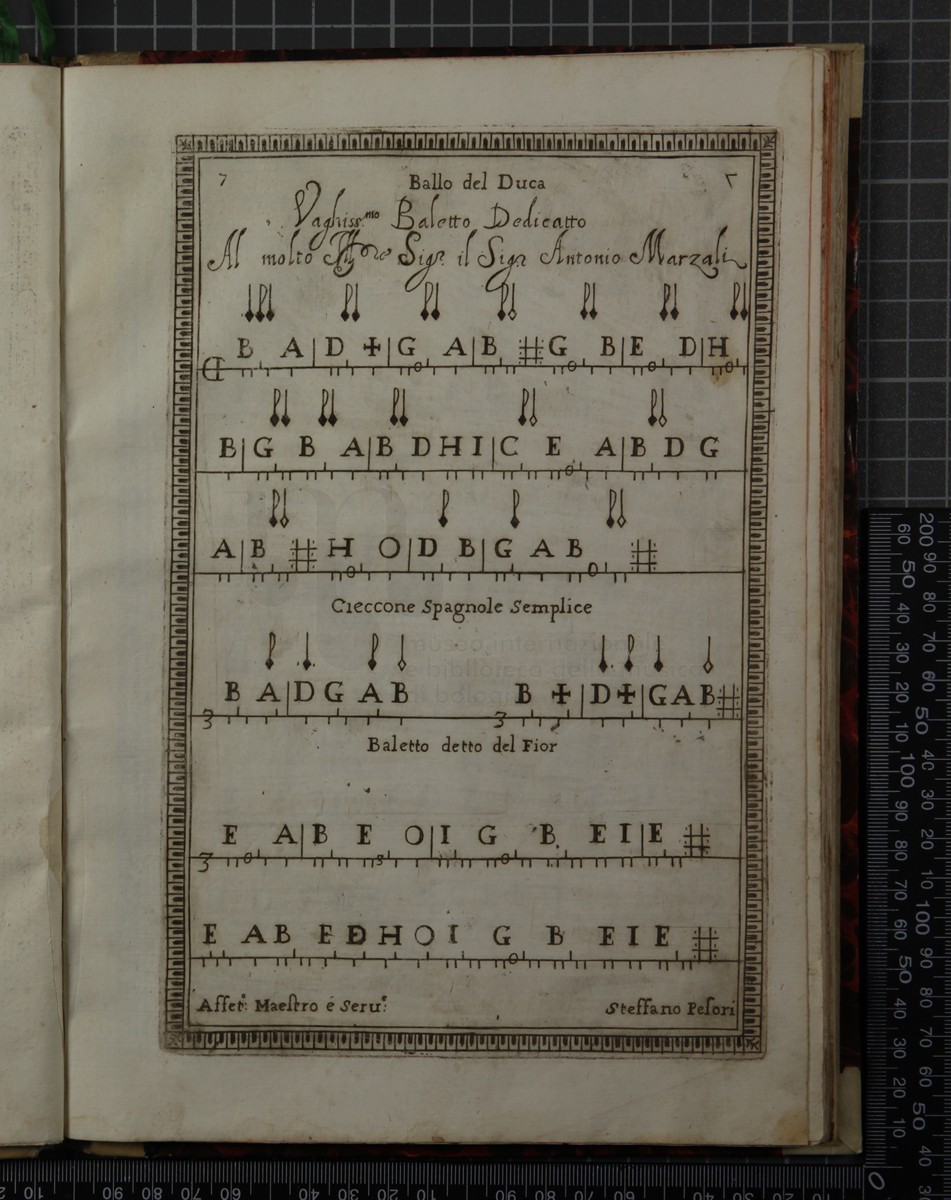 7 Ballo del Duca 7
Vaghiss.mo Baletto Dedicatto
Al molto Sigr. il Sigr Antonio Marzali
B A|D ✠|G A|B G B|E D|H
B|G B A|B D H I|C E A|B D G
A|B H O|D B|G A B
Cieccone Spagnole Semplice
B A|D G A B B ✠|D ✠|G A B
3 3
Baletto detto del Fior
E A|B E O|I G B E I|E
3
E A B E D H O I G B E I E
Affet.o Maestro é Seru.e Steffano Pesori